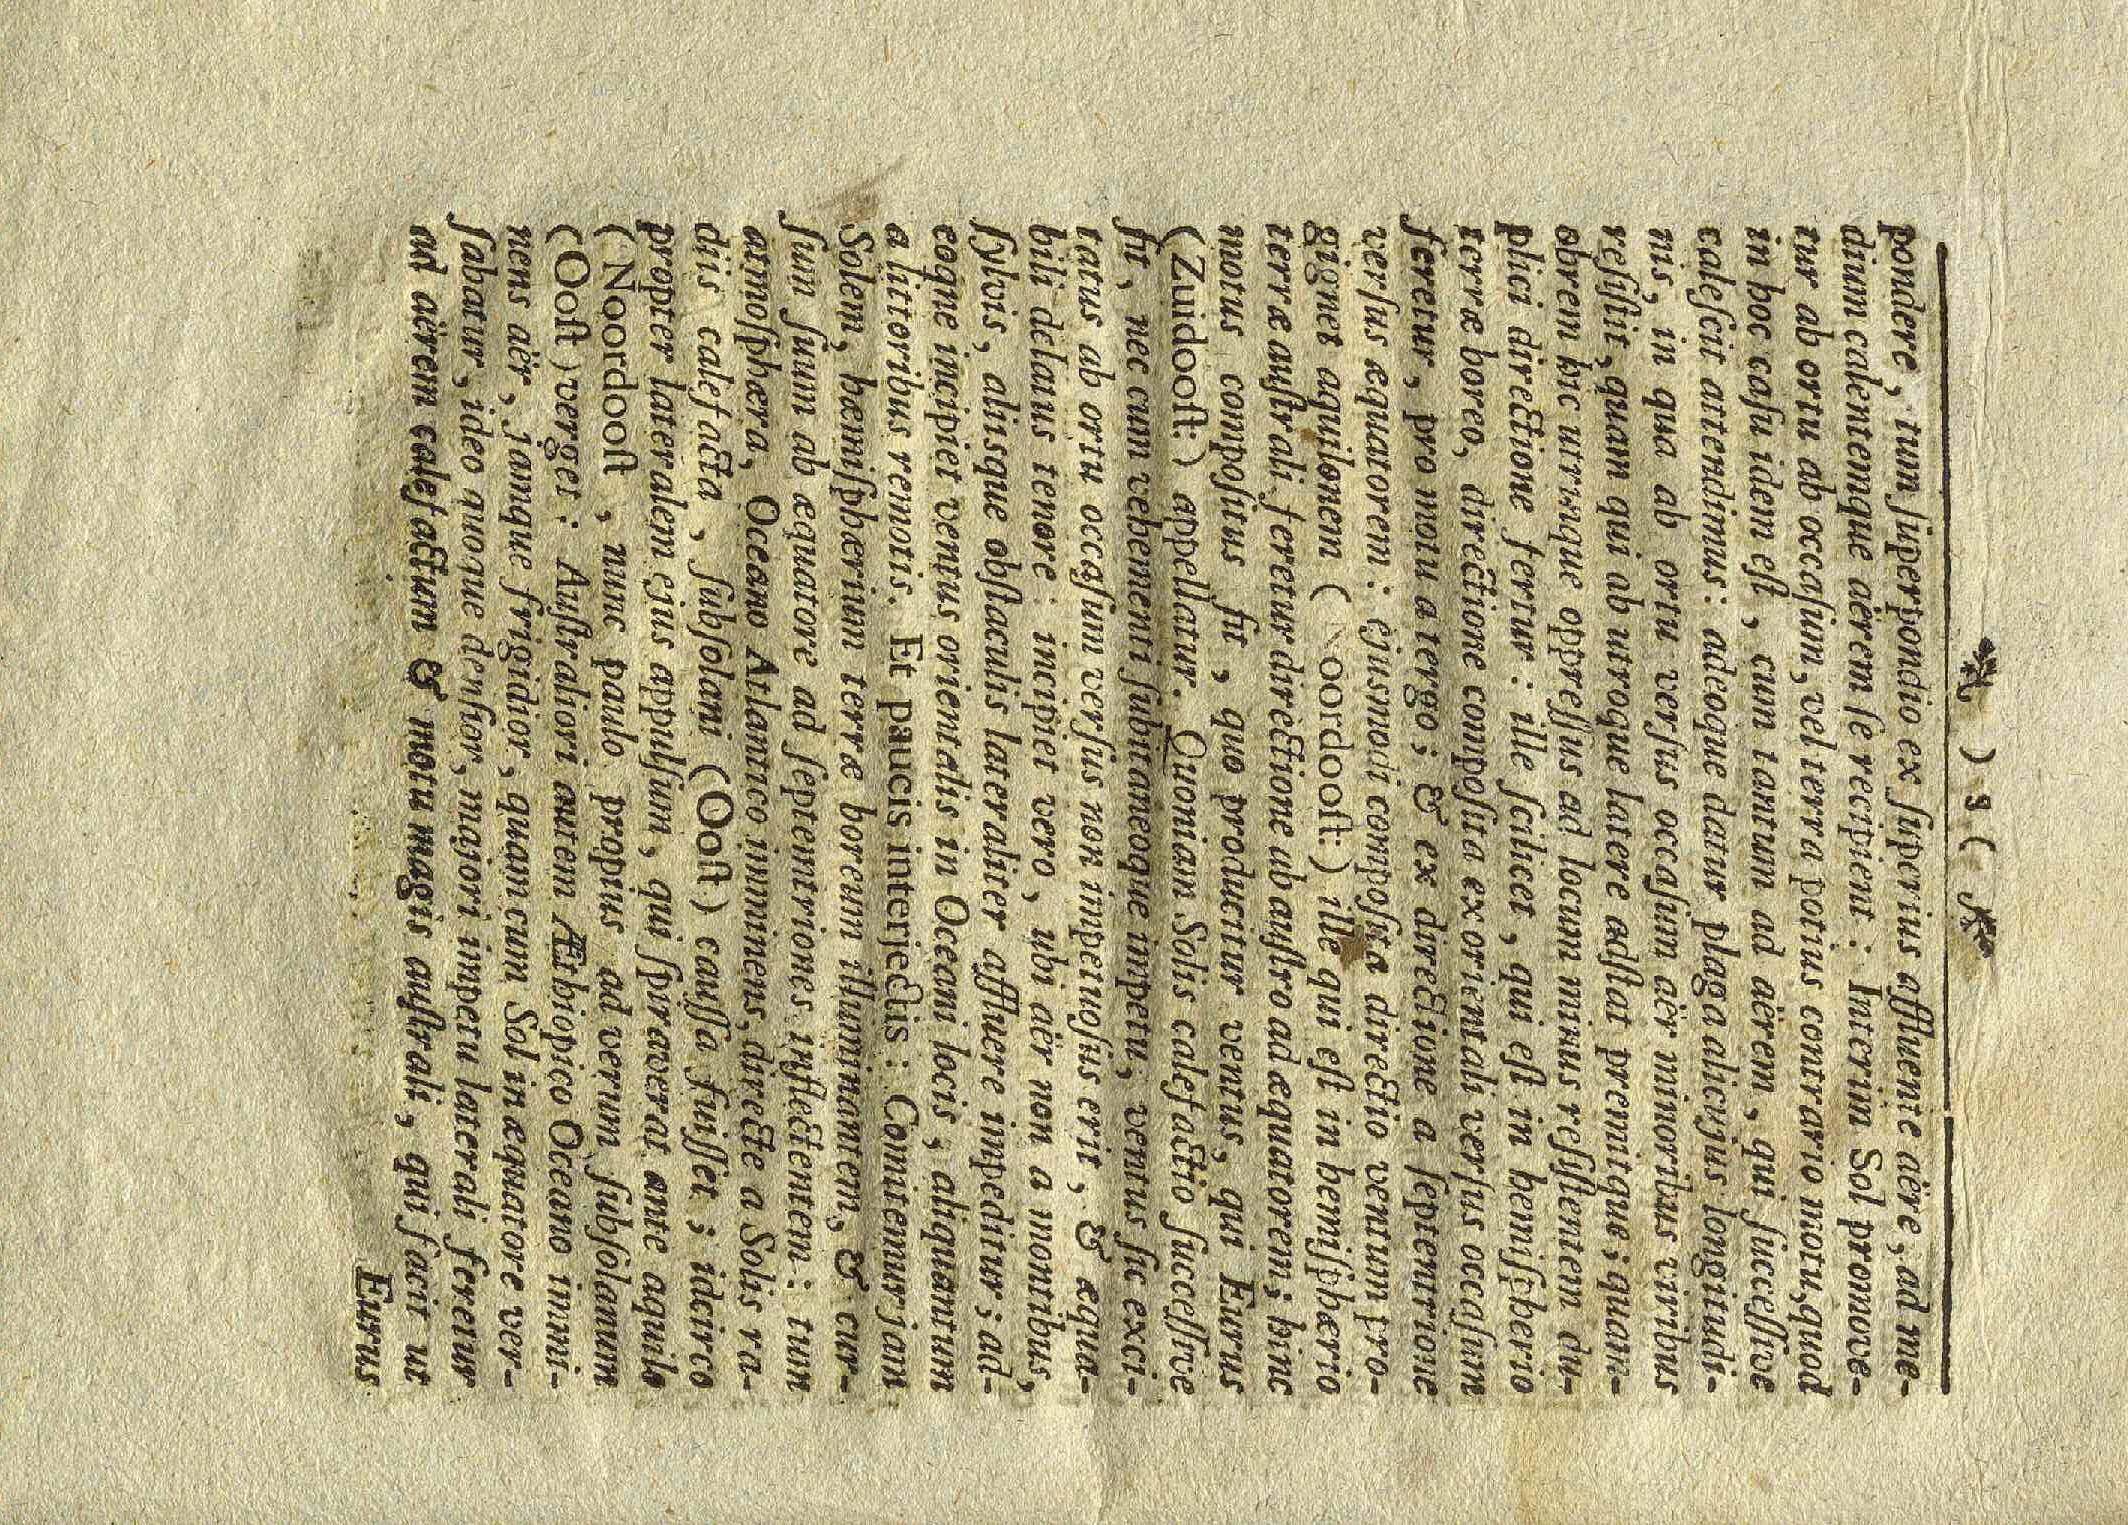 ) 9 (
pondere, tum ſuperpondio ex ſuperius affluente aëre, ad me-
dium calentemque aërem ſe recipient: Interim Sol promove-
tur ab ortu ab occaſum, vel terra potius contrario motu, quod
in hoc caſu idem eſt, cum tantum ad aërem, qui ſucceſſive
caleſcit attendimus: adeoque datur plaga alicujus longitudi-
nis, in qua ab ortu verſus occaſum aër minoribus viribus
reſiſtit, quam qui ab utroque latere adſtat premitque; quam-
obrem hic utrinque oppreſſus ad locum minus reſiſtentem du-
plici directione fertur: ille ſcilicet, qui eſt in hemiſpherio
terræ boreo, directione compoſita ex orientali verſus occaſum
feretur, pro motu a tergo; & ex directione a ſeptentrione
verſus æquatorem: ejusmodi compoſita directio ventum pro-
gignet aquilonem (Noordooſt:) ille qui eſt in hemiſphærio
terræ auſtrali feretur directione ab auſtro ad æquatorem; hinc
motus compoſitus fit, quo producitur ventus, qui Eurus
(Zuidooſt:) appellatur. Quoniam Solis calefactio ſucceſſive
fit, nec cum vehementi ſubitaneoque impetu, ventus ſic exci-
tatus ab ortu occaſum verſus non impetuoſus erit, & æqua-
bili delatus tenore: incipiet vero, ubi aër non a montibus,
ſylvis, aliisque obſtaculis lateraliter affluere impeditur; ad-
eoque incipiet ventus orientalis in Oceani locis, aliquantum
a littoribus remotis. Et paucis interjectis: Comitemur jam
Solem, hæmiſphærium terræ boreum illuminantem, & cur-
ſum ſuum ab æquatore ad ſeptentriones inflectentem: tum
atmoſphæra, Oceano Atlantico imminens, directe a Solis ra-
diis calefacta, ſubſolani (Ooſt) cauſſa fuiſſet; idcirco
propter lateralem ejus appulſum, qui ſpiraverat ante aquilo
(Noordooſt, nunc paulo propius ad verum ſubſolanum
(Ooſt) verget: Auſtraliori autem Æthiopico Oceano immi-
nens aër, jamque frigidior, quam cum Sol in æquatore ver-
ſabatur, ideo quoque denſior, majori impetu laterali feretur
ad aërem calefactum & motu magis auſtrali, qui facit ut
Eurus